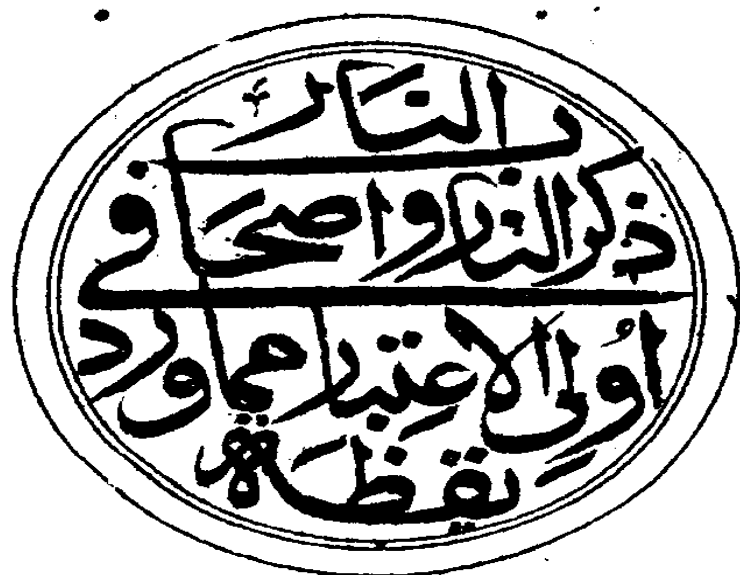 يقظة
اولي الاعتبار مما ورد
في ذكر النار واصحاب
النار